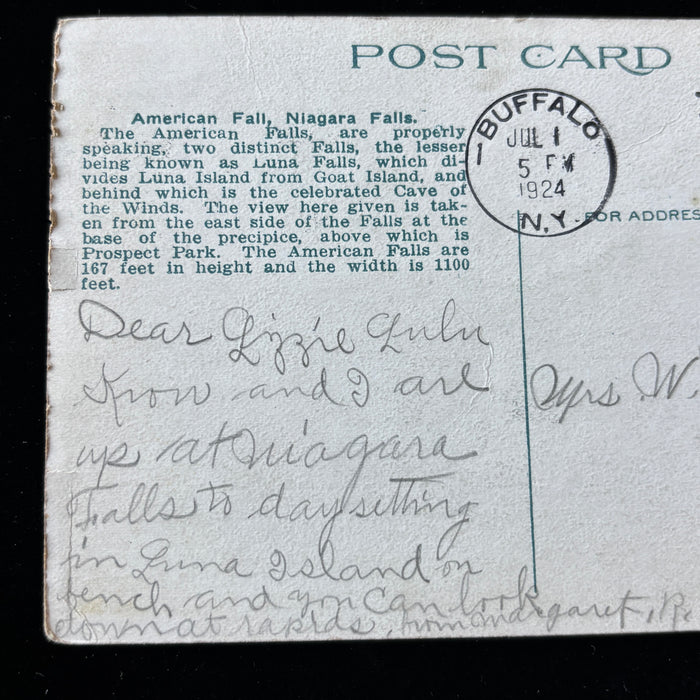 POST CARD
American Fall, Niagara Falls.
The American Falls, are properly
speaking, two distinct Falls, the lesser
being known as Luna Falls, which di-
vides Luna Island from Goat Island, and
behind which is the celebrated Cave of
the Winds. The view here given is tak-
en from the east side of the Falls at the
base of the precipice, above which is
Prospect Park. The American Falls are
167 feet in height and the width is 1100
feet.
BUFFALO
1
JUL 1
5 PM
1924
N.Y.
FOR ADDRES
Dear Lizzie Lulu
Krow and I are
up at Niagara
Falls to day sitting
in Luna Island on
bench and you can look
down at rapids, from Margaret, R.
Mrs W.